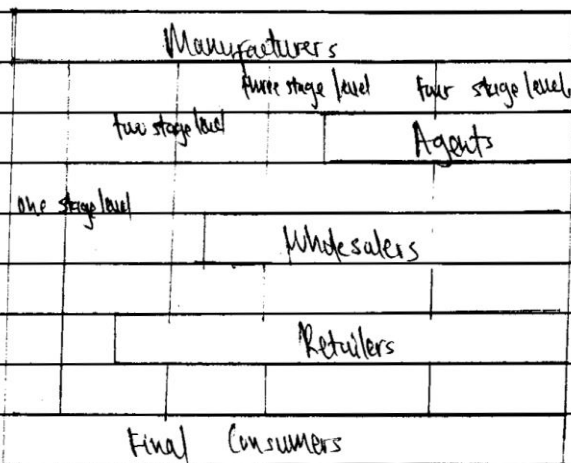 Manufacturers
three stage level four stage level
two stage level
Agents
one stage level
Wholesalers
Retailers
Final Consumers